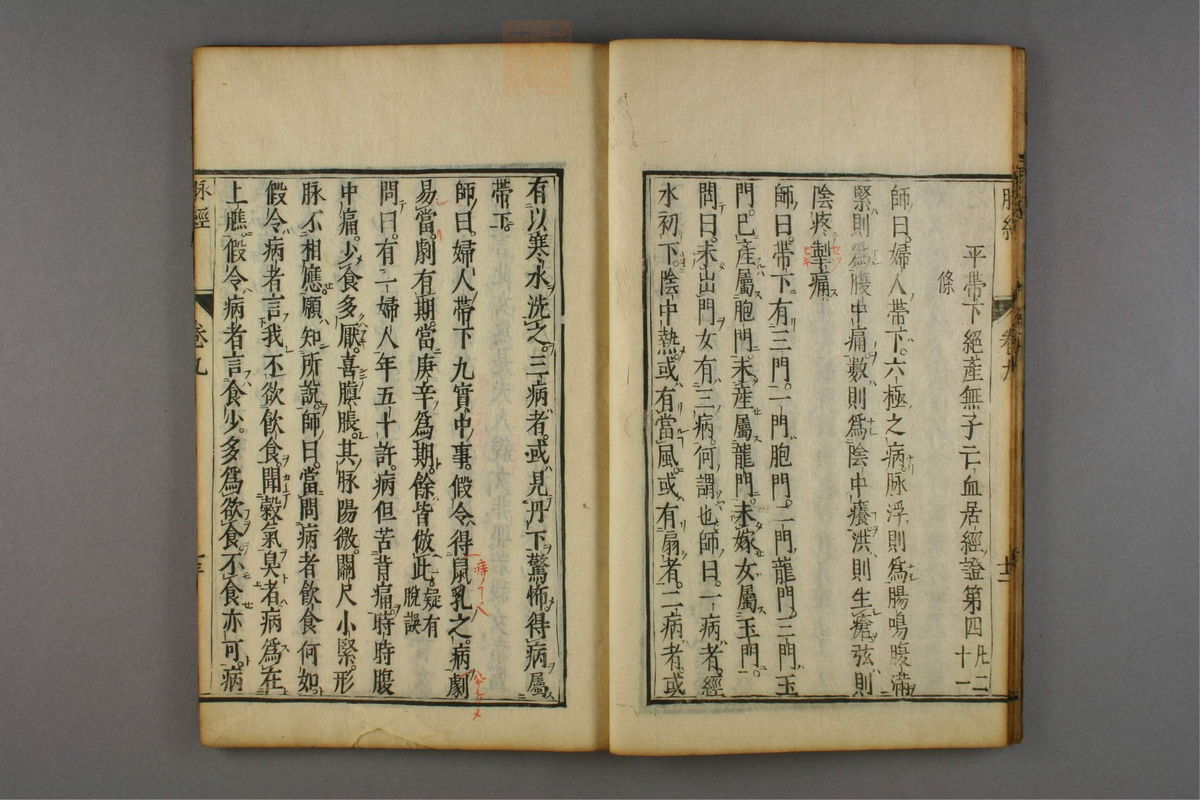 脉經
卷九
十二
平帶下絕產無子亡血居經證第四凡二十一
條
師曰。婦人帶下。六極之病。脉浮則爲腸鳴腹滿
緊則爲腹中痛數則爲陰中癢洪則生瘡弦則
陰疼掣痛
師曰。帶下有三門。一門胞門。二門龍門。三門玉
門。已產屬胞門。未產屬龍門。未嫁女屬玉門。
問曰。未出門女有三病。何謂也。師曰。一病者。經
水初下。陰中熱。或有當風。或有扇者。二病者。或
有以寒水洗之。三病者。或見丹下驚怖得病。屬
帶下。
師曰。婦人帶下九實中事。假令得鼠乳之。病劇
易。當劇有期。當庚辛爲期。餘皆倣此。疑有脫誤
問曰。有一婦人年五十許。病但苦背痛。時時腹
中痛。少食多厭。喜䐜脹。其脉陽微。關尺小緊。形
脉不相應。願知所說。師曰。當問病者飲食何如。
假令病者言我不欲飲食聞穀氣臭者病爲在
上膲。假令病者言食少。多爲欲食。不食亦可。病
脉經
卷九